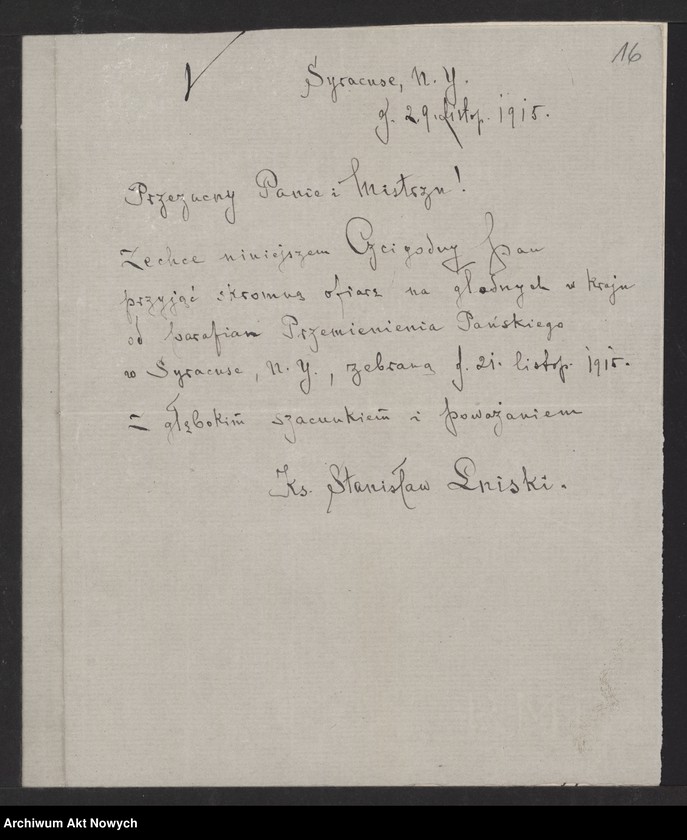 16
Syracuse, N. Y.
d. 29. listop. 1915.
Przezacny Panie i Mistrzu!
Zechce niniejszem Czcigodny Pan
przyjąć skromną ofiarę na głodnych w kraju
od parafian Przemienienia Pańskiego
w Syracuse, N. Y., zebraną d. 21. listop. 1915.
Z głębokim szacunkiem i poważaniem
Ks. Stanisław Lniski.
Archiwum Akt Nowych